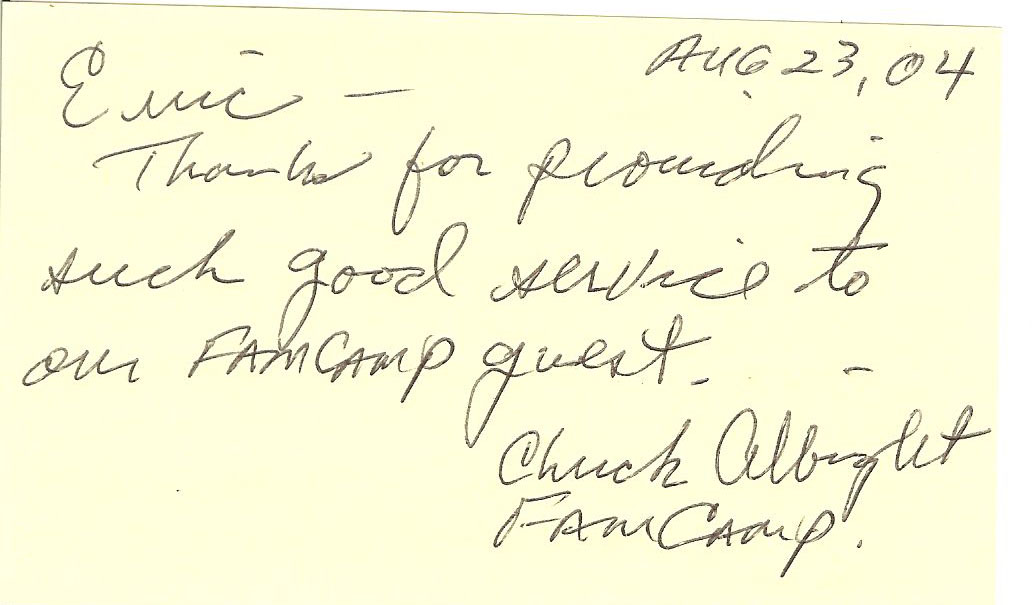 AUG 23, 04
Eric —
Thanks for providing
such good service to
our FAMCAMP guest.
Chuck Albright
FAMCAMP.